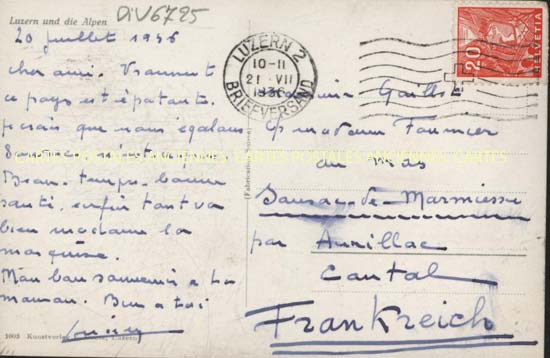 Luzern und die Alpen
DIV6795
20 juillet 1936
cher ami. Vraiment
ce pays est épatant.
je crois que nous égalons
Beau temps, bonne
santé, enfin tout va
bien madame la
marquise.
Mon bon souvenir à ta
maman. Bien à toi
LUZERN 2
10-11
21 VII
1936
BRIEFVERSAND
20
HELVETIA
madame Fournier
au Mas
Sansac-de-Marmiesse
par Aurillac
Cantal
Frankreich
CARTES POSTALES ANCIENNES CARTES POSTALES ANCIENNES CARTES
1003 Luzern